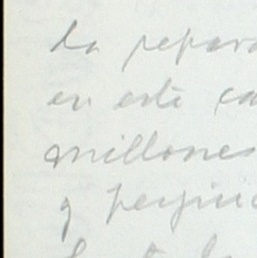 la repara
en este ca
millones
y perjuic